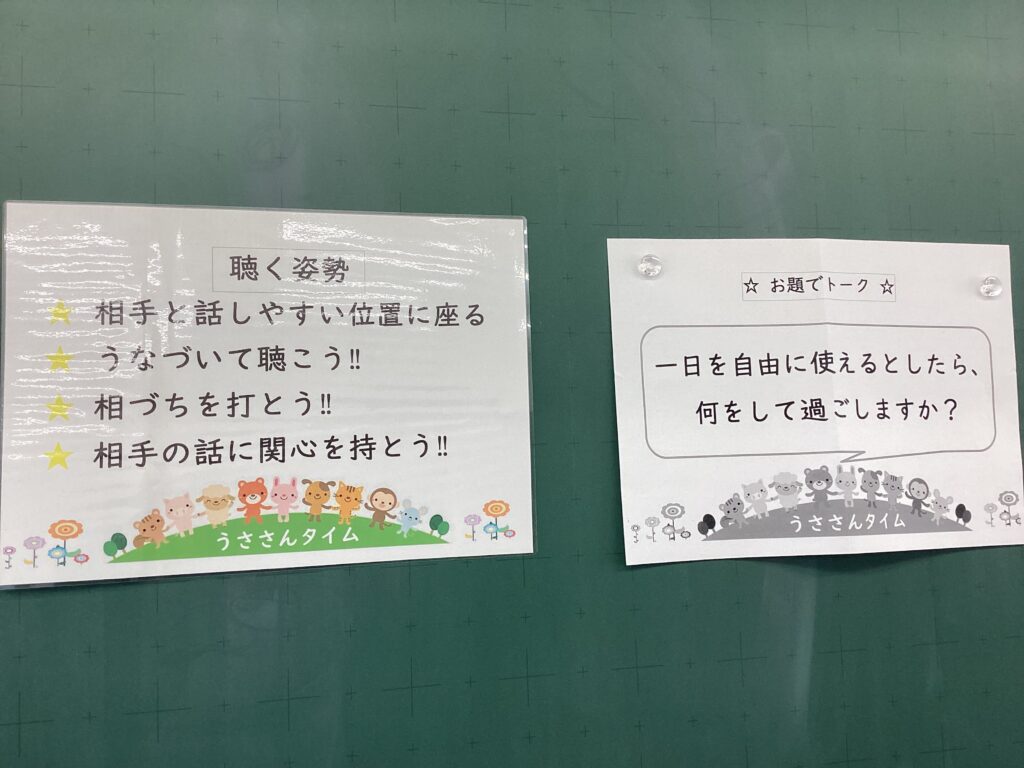 聴く姿勢
★ 相手と話しやすい位置に座る
★ うなづいて聴こう!!
★ 相づちを打とう!!
★ 相手の話に関心を持とう!!
うささんタイム
☆ お題でトーク ☆
一日を自由に使えるとしたら、
何をして過ごしますか？
うささんタイム